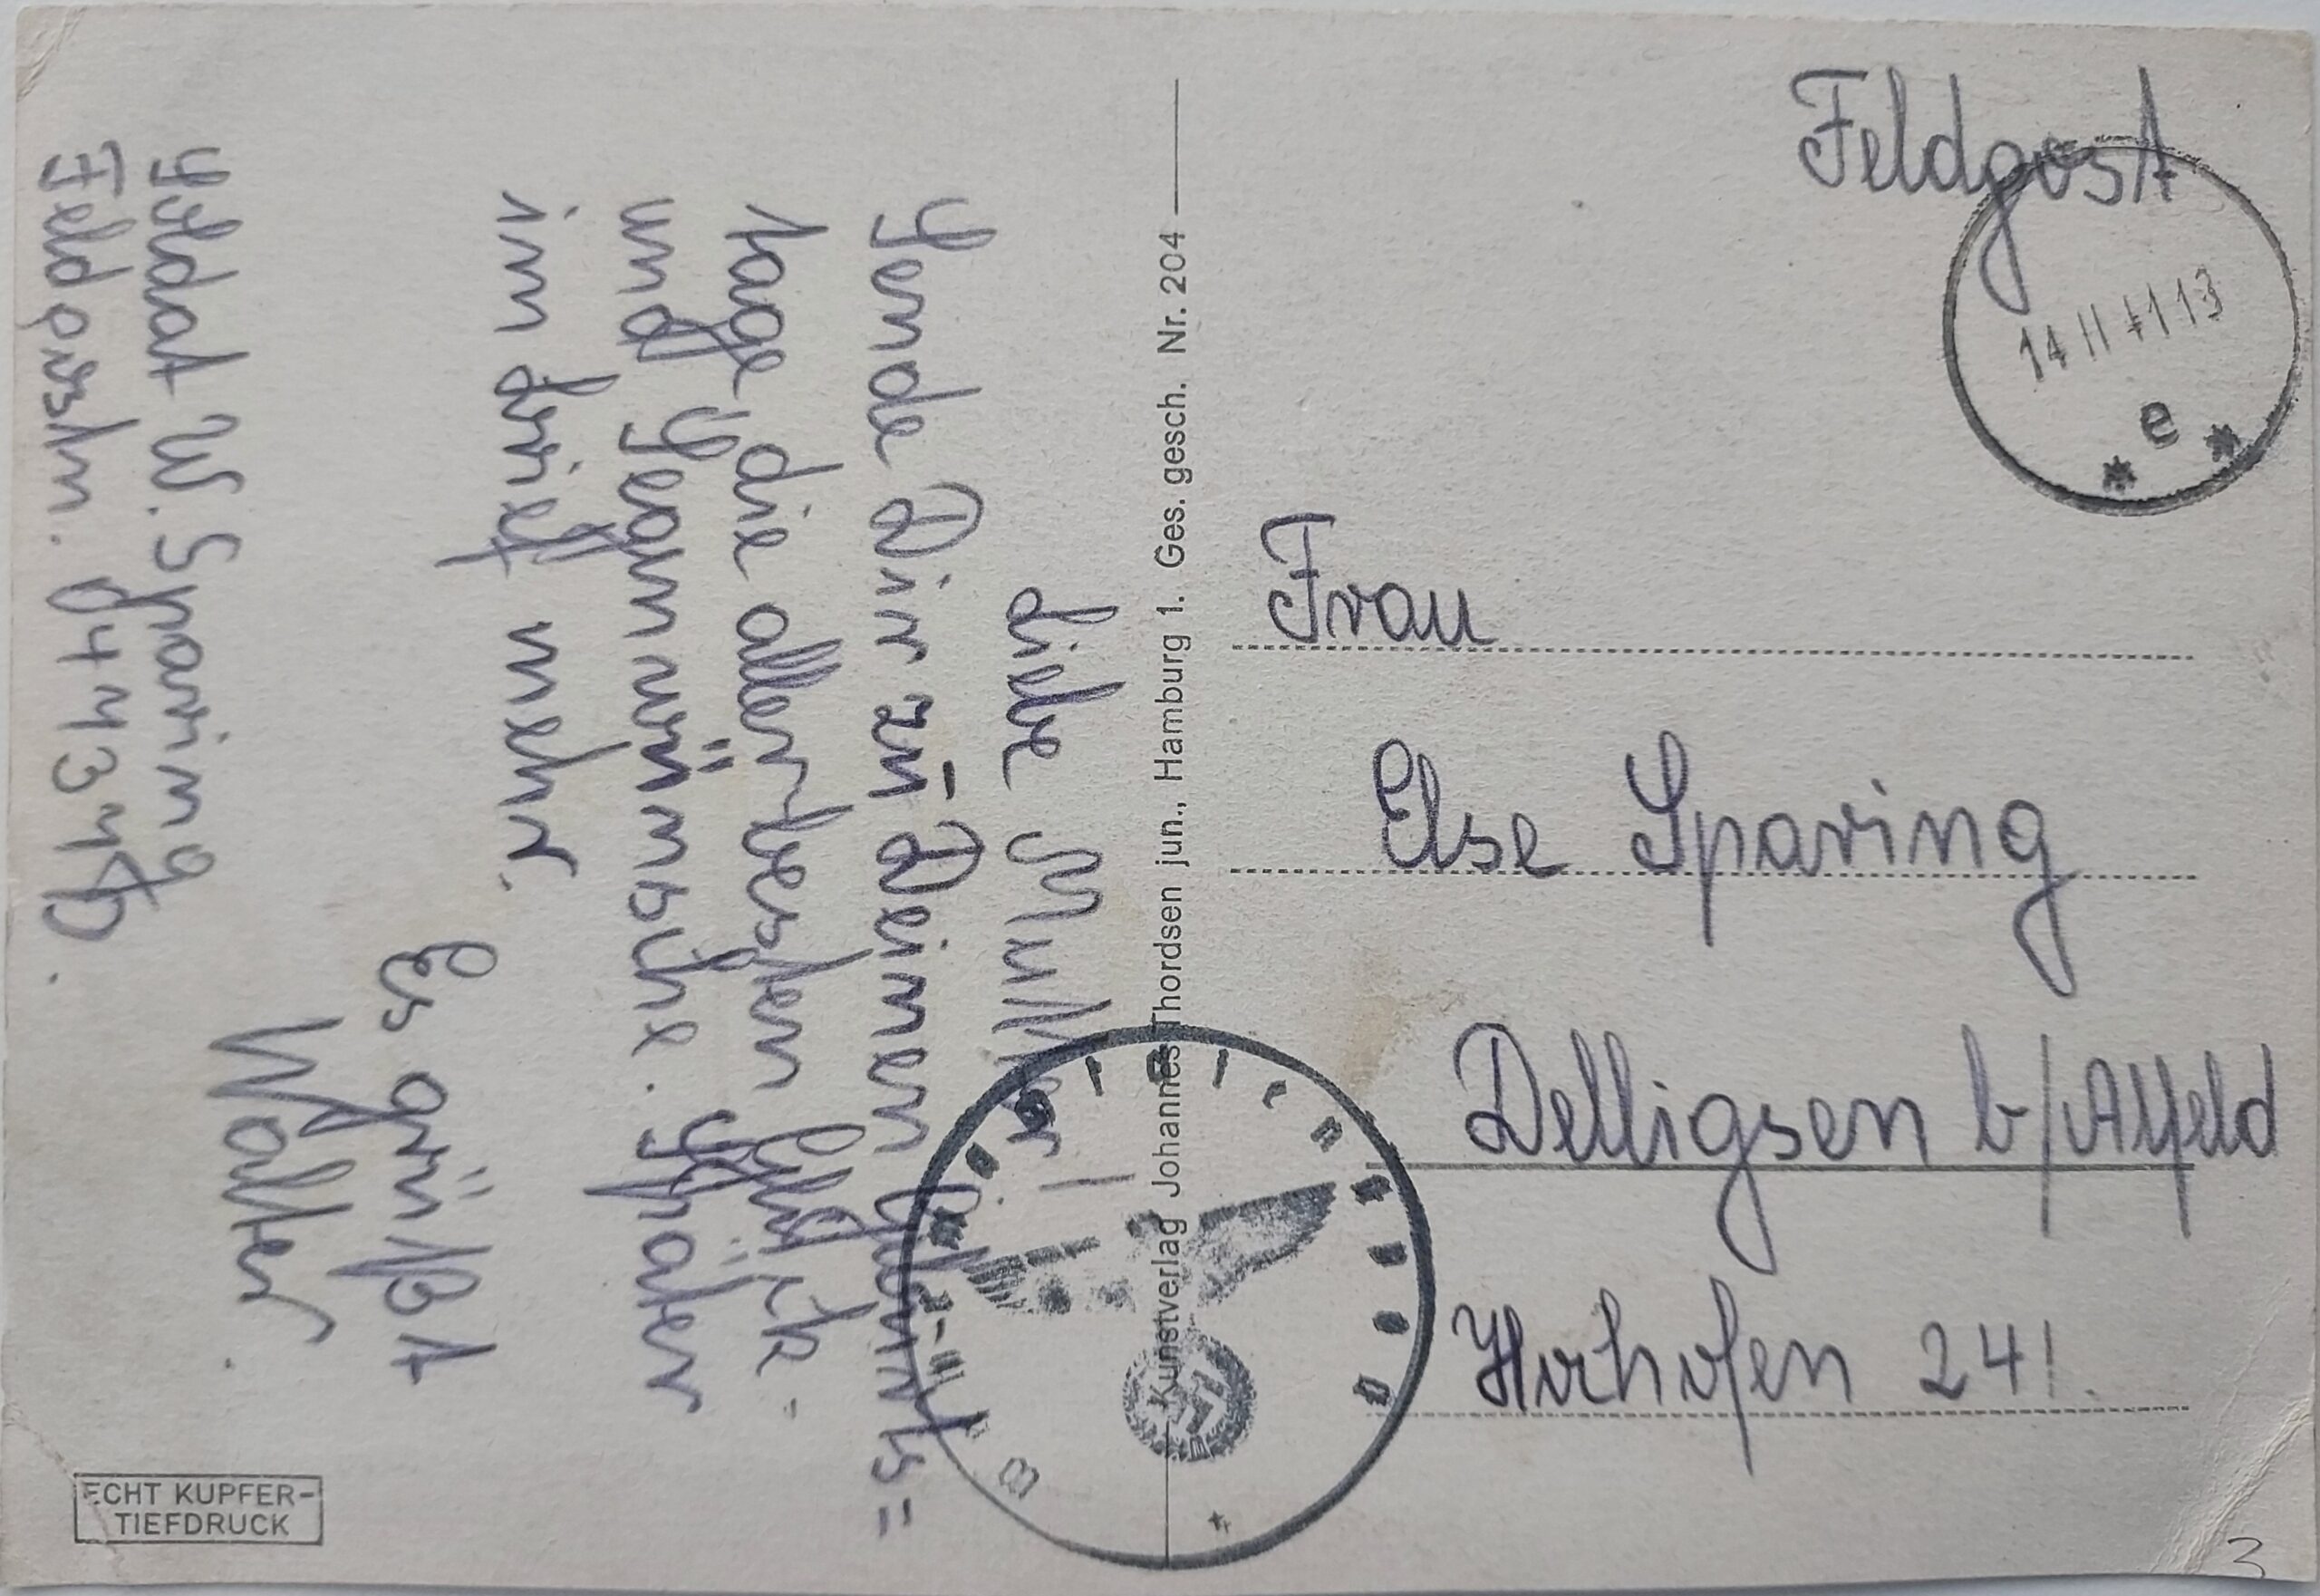 Feldpost
14 11 41 13
e
Frau
Else Sparing
Delligsen b/Alfeld
Hochofen 24!
Liebe Mutter!
Sende Dir zu Deinen Geburts=
tage die allerbesten Glück-
und Segenwünsche. Später
im Brief mehr.
Es grüßt
Walter.
Sold at W. Sparing
Feldpostn.
Kunstverlag Johannes Thordsen jun., Hamburg 1. Ges. gesch. Nr. 204
ECHT KUPFER-
TIEFDRUCK
3